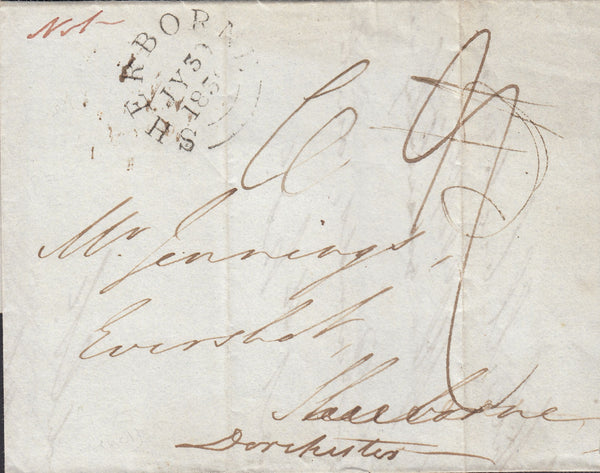 Not
SHERBORNE
JY 30
Mr. Jennings,
Evershot
Sherborne
Dorchester